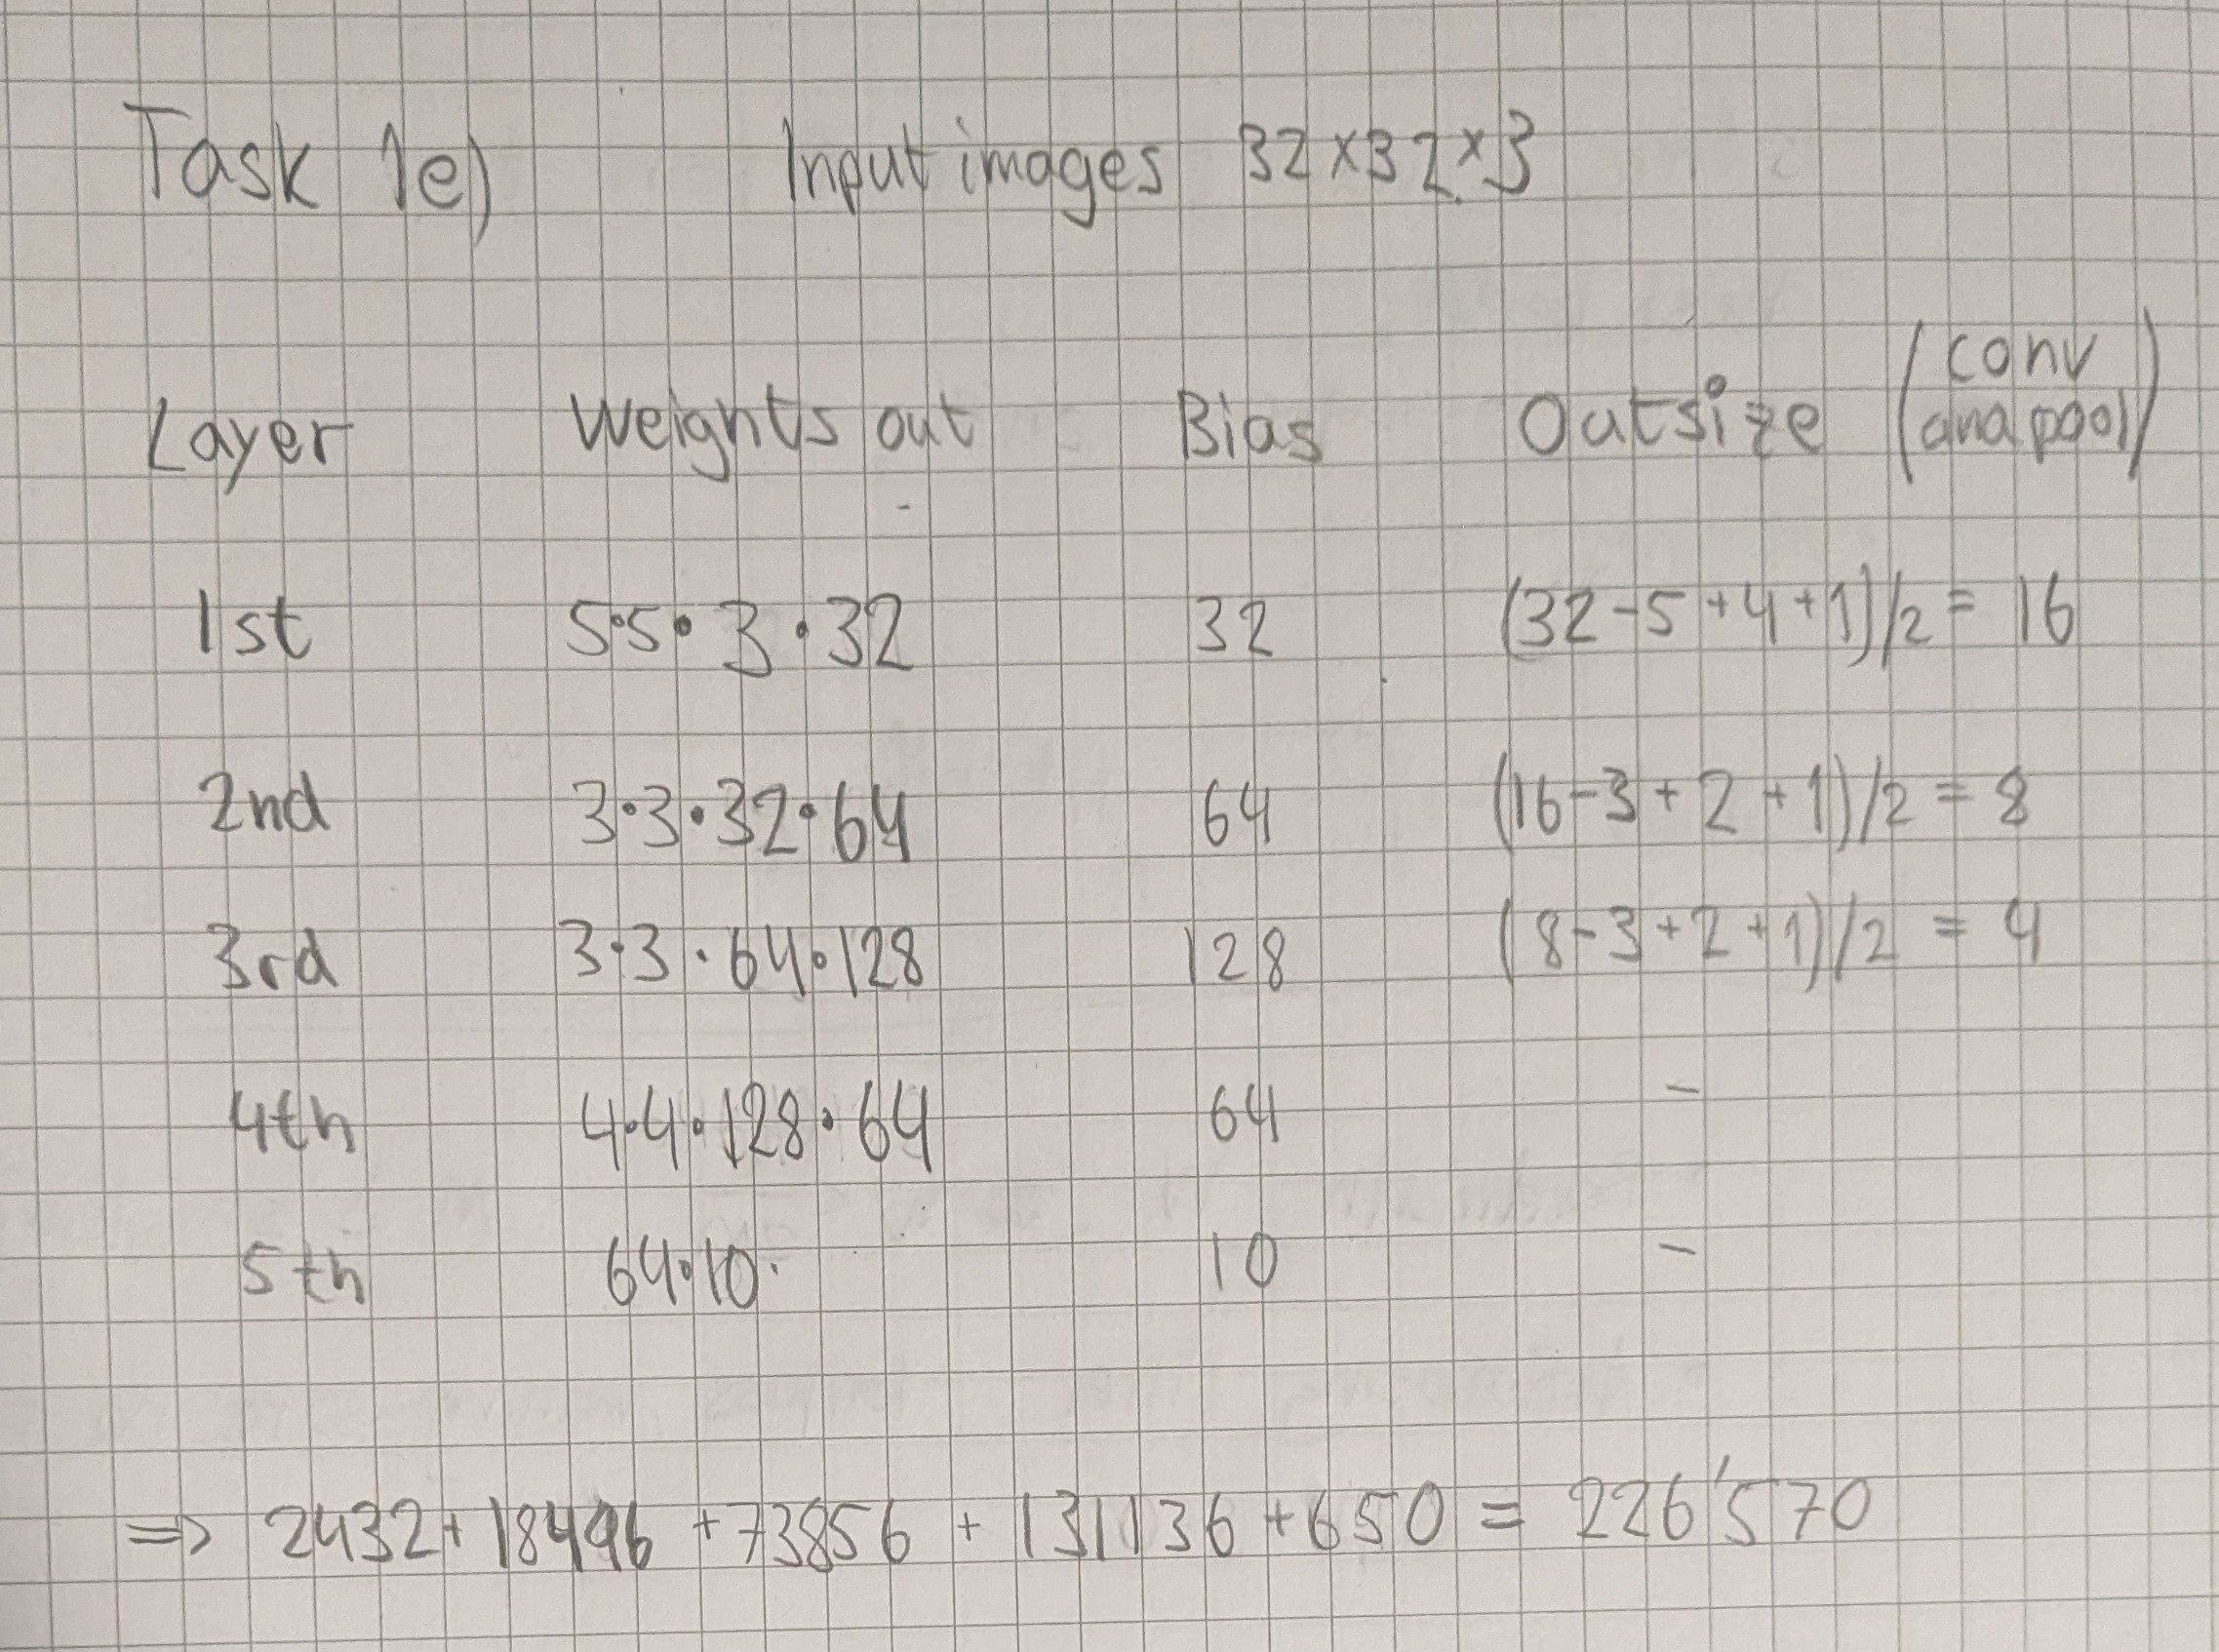 Task 1e) Input images 32×32×3
Layer Weights out Bias Outsize (conv and pool)
1st 5·5·3·32 32 (32-5+4+1)/2 = 16
2nd 3·3·32·64 64 (16-3+2+1)/2 = 8
3rd 3·3·64·128 128 (8-3+2+1)/2 = 4
4th 4·4·128·64 64 -
5th 64·10 10 -
=> 2432+18496+73856+131136+650 = 226'570